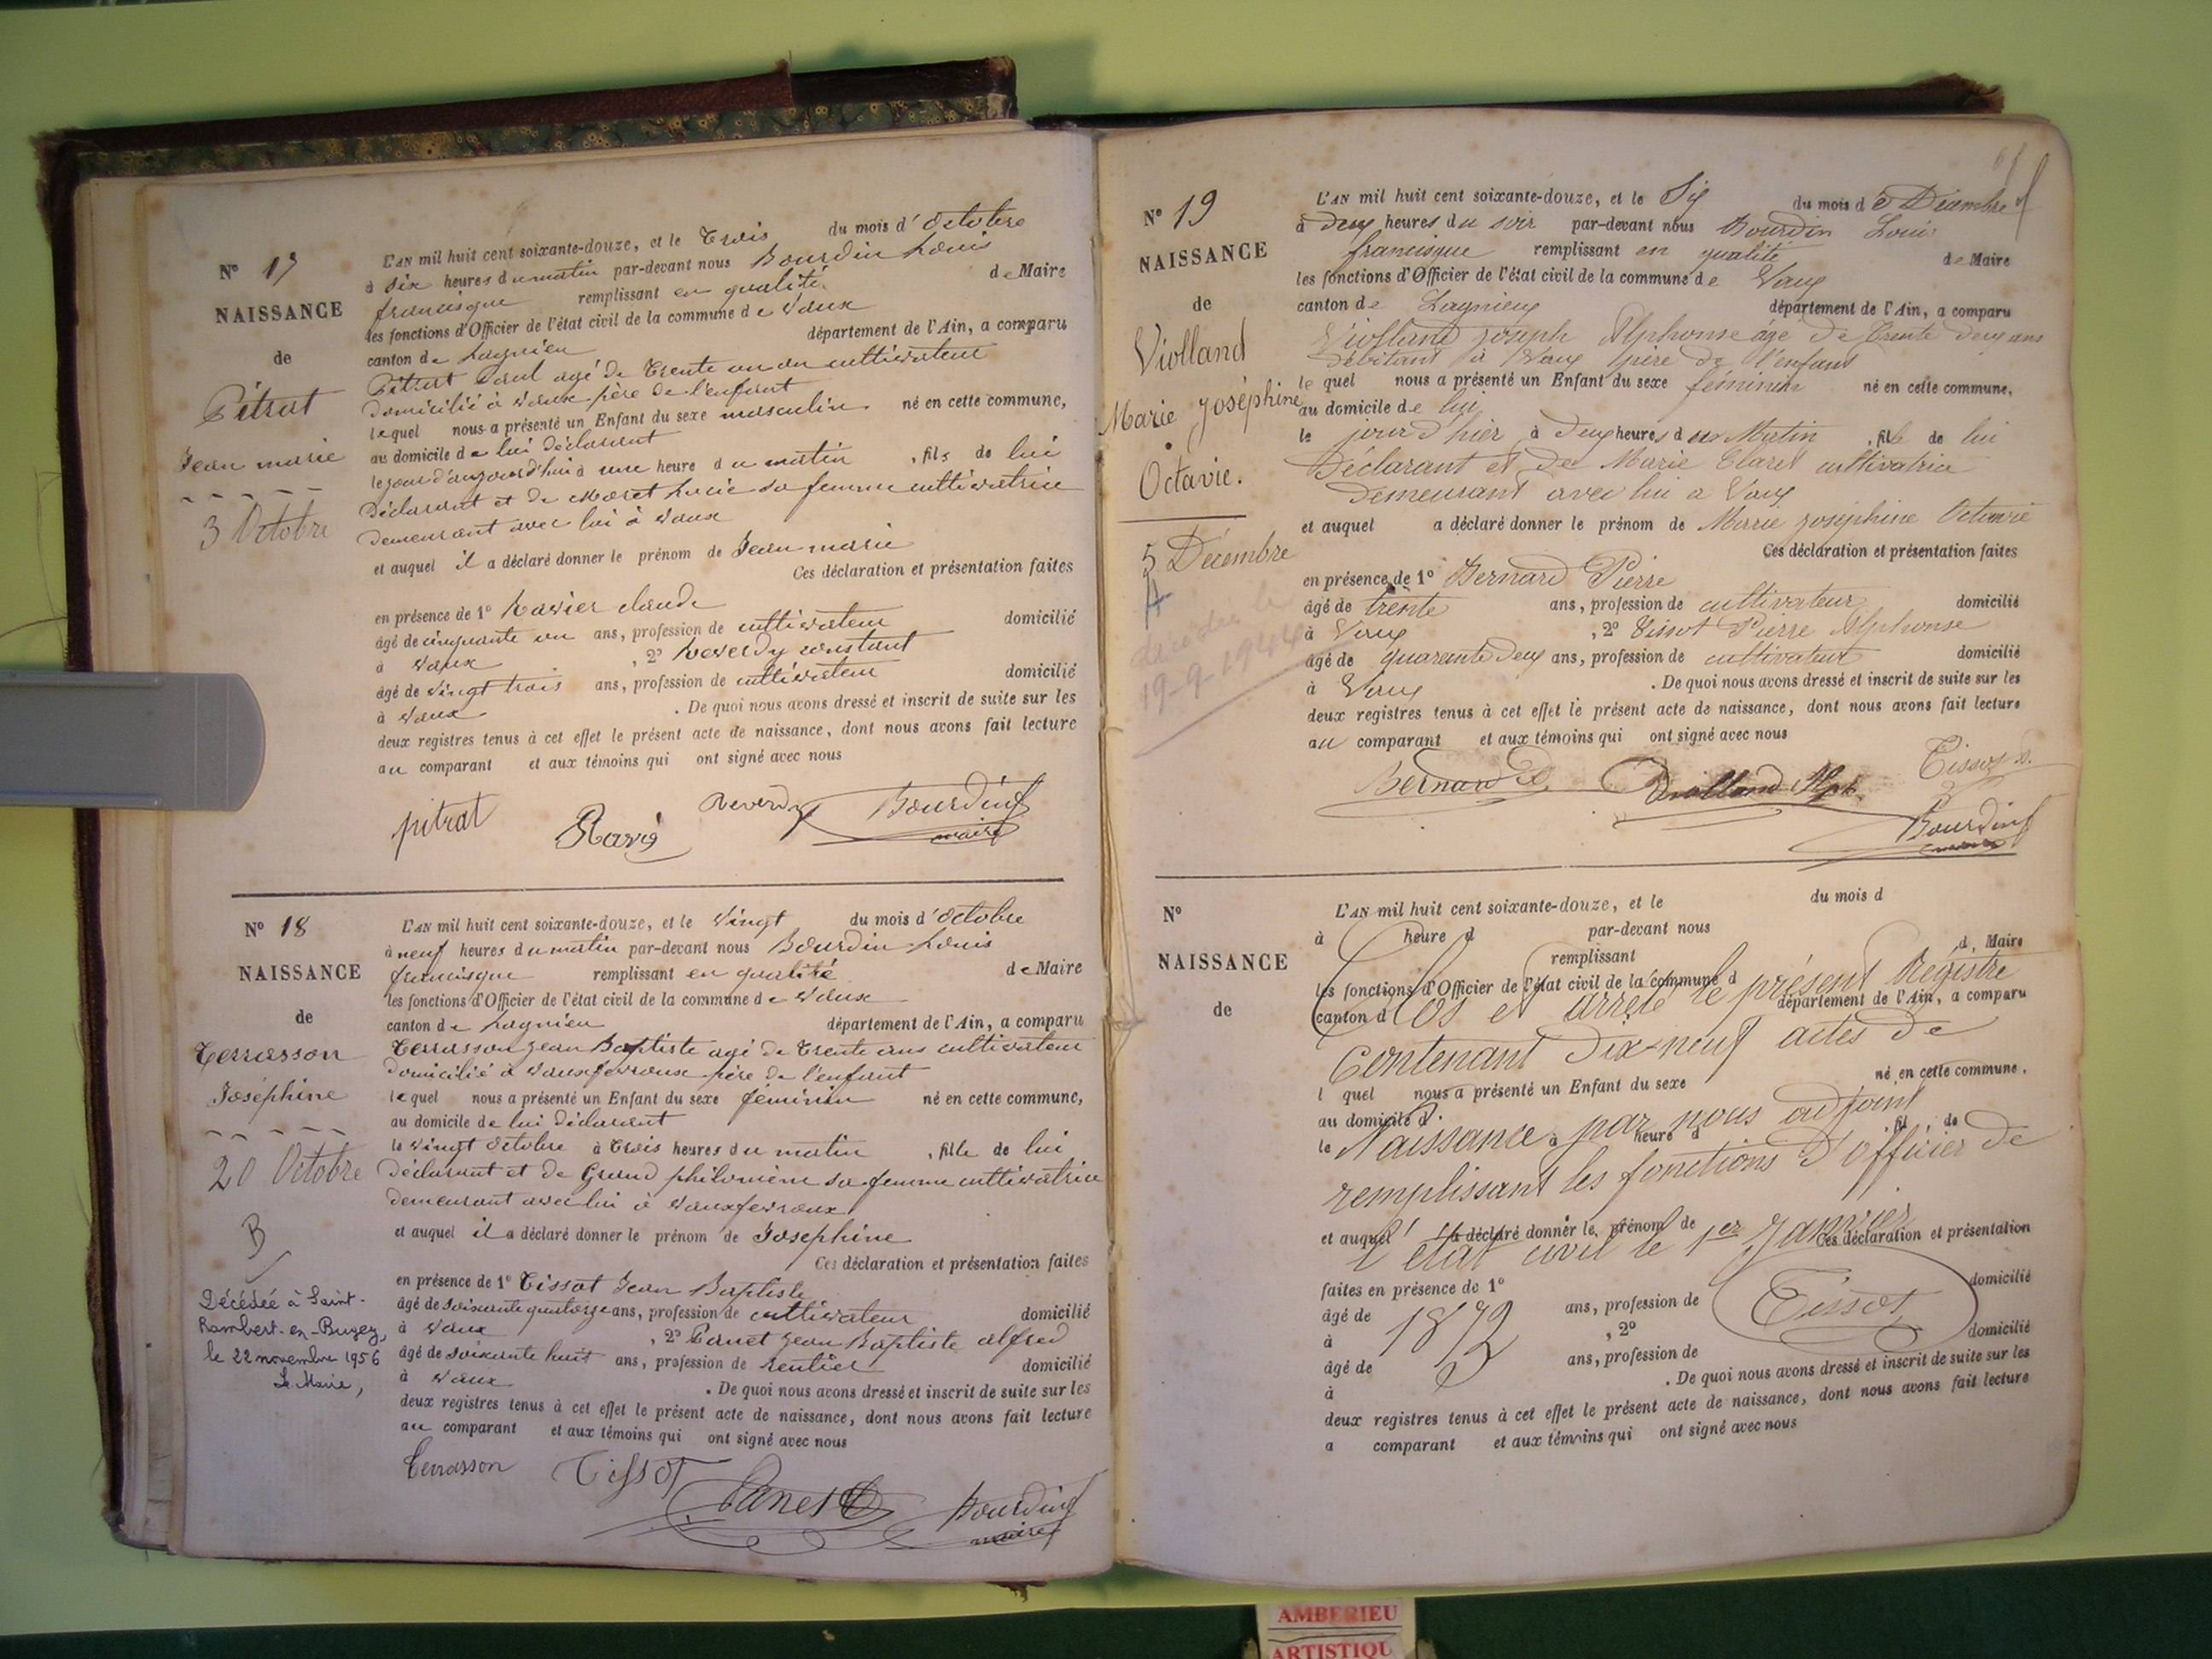 N° 17
NAISSANCE
de
Pitrat
Jean marie
3 Octobre
L'AN mil huit cent soixante-douze, et le Trois du mois d'octobre
à dix heures du matin par-devant nous Bourdin Louis
francisque remplissant en qualité de Maire
les fonctions d'Officier de l'état civil de la commune de Vaux
canton de Lagnieu département de l'Ain, a comparu
Pitrat agé de Trente un an cultivateur
domicilié à Vaux père de l'enfant
lequel nous a présenté un Enfant du sexe masculin né en cette commune,
au domicile de lui déclarant
le jour d'aujourd'hui à une heure du matin, fils de lui
déclarant et de Moret Lucie sa femme cultivatrice
demeurant avec lui à Vaux
et auquel il a déclaré donner le prénom de Jean marie
Ces déclaration et présentation faites
en présence de 1° Ravier claude
âgé de cinquante un ans, profession de cultivateur domicilié
à Vaux, 2° Reverdy constant
âgé de vingt trois ans, profession de cultivateur domicilié
à Vaux. De quoi nous avons dressé et inscrit de suite sur les
deux registres tenus à cet effet le présent acte de naissance, dont nous avons fait lecture
au comparant et aux témoins qui ont signé avec nous
pitrat Reverdy Bourdin
maire
N° 18
NAISSANCE
de
Terrasson
Joséphine
20 Octobre
B
Décédée à Saint-
Rambert-en-Bugey,
le 22 novembre 1956
Le Maire,
L'AN mil huit cent soixante-douze, et le Vingt du mois d'octobre
à neuf heures du matin par-devant nous Bourdin Louis
francisque remplissant en qualité de Maire
les fonctions d'Officier de l'état civil de la commune de Vaux
canton de Lagnieu département de l'Ain, a comparu
Terrasson Jean Baptiste agé de Trente ans cultivateur
domicilié à Vauxfevroux père de l'enfant
lequel nous a présenté un Enfant du sexe féminin né en cette commune,
au domicile de lui déclarant
le vingt octobre à trois heures du matin, fille de lui
déclarant et de Grand philomène sa femme cultivatrice
demeurant avec lui à Vauxfevroux
et auquel il a déclaré donner le prénom de Josephine
Ces déclaration et présentation faites
en présence de 1° Tissot Jean Baptiste
âgé de soixante quatorze ans, profession de cultivateur domicilié
à Vaux, 2° Panet Jean Baptiste alfred
âgé de soixante huit ans, profession de rentier domicilié
à Vaux. De quoi nous avons dressé et inscrit de suite sur les
deux registres tenus à cet effet le présent acte de naissance, dont nous avons fait lecture
au comparant et aux témoins qui ont signé avec nous
Terrasson Tissot
Panet Bourdin
maire
N° 19
NAISSANCE
de
Violland
Marie Joséphine
Octavie.
5 Décembre
décédée le
19-9-1944
L'AN mil huit cent soixante-douze, et le Six du mois de Décembre
à deux heures du soir par-devant nous Bourdin Louis
francisque remplissant en qualité de Maire
les fonctions d'Officier de l'état civil de la commune de Vaux
canton de Lagnieux département de l'Ain, a comparu
Violland Joseph Alphonse âgé de trente deux ans
débitant à Vaux père de l'enfant
lequel nous a présenté un Enfant du sexe féminin né en cette commune,
au domicile de lui
le jour d'hier à deux heures du Matin, fille de lui
Déclarant et de Marie Claret cultivatrice
demeurant avec lui a Vaux
et auquel a déclaré donner le prénom de Marie Joséphine Octavie
Ces déclaration et présentation faites
en présence de 1° Bernard Pierre
âgé de trente ans, profession de cultivateur domicilié
à Vaux, 2° Tissot Pierre Alphonse
âgé de quarante deux ans, profession de cultivateur domicilié
à Vaux. De quoi nous avons dressé et inscrit de suite sur les
deux registres tenus à cet effet le présent acte de naissance, dont nous avons fait lecture
au comparant et aux témoins qui ont signé avec nous
Bernard Violland Alph. Tissot
Bourdin
maire
N°
NAISSANCE
de
L'AN mil huit cent soixante-douze, et le du mois d
à heure d par-devant nous
remplissant d Maire
les fonctions d'Officier de l'état civil de la commune d
canton d département de l'Ain, a comparu
Clos et arrêté le présent Registre
Contenant Dix-neuf actes de
l quel nous a présenté un Enfant du sexe né en cette commune,
au domicile d
le à heure d fil de
Naissance par nous adjoint
remplissant les fonctions d'officier de
et auquel a déclaré donner le prénom de Ces déclaration et présentation
l'état civil le 1er Janvier
faites en présence de 1° domicilié
âgé de ans, profession de
1872 Tissot
à , 2° domicilié
âgé de ans, profession de
à . De quoi nous avons dressé et inscrit de suite sur les
deux registres tenus à cet effet le présent acte de naissance, dont nous avons fait lecture
a comparant et aux témoins qui ont signé avec nous
AMBERIEU
ARTISTIQU